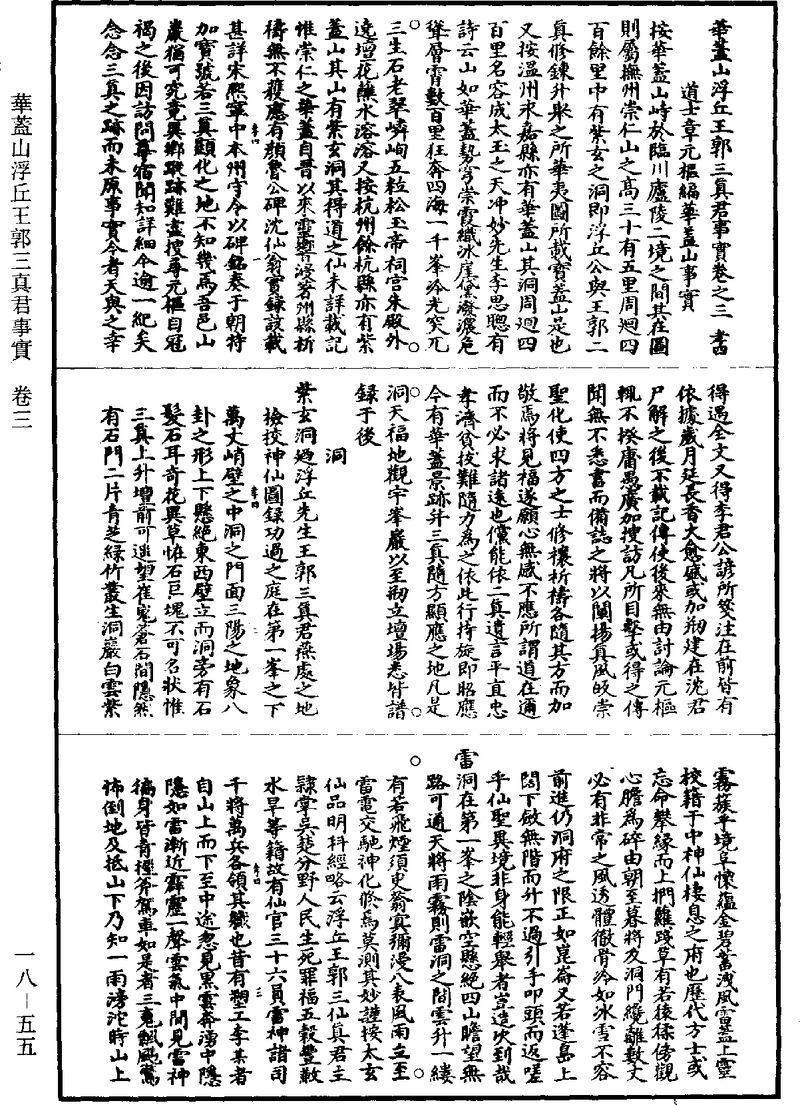 華蓋山浮丘王郭三真君事實卷之三 孝四
道士章元樞編華蓋山事實
按華蓋山峙於臨川廬陵二境之間其在圖
則屬撫州崇仁山之高三十有五里周迴四
百餘里中有紫玄之洞即浮丘公與王郭二
真修鍊升舉之所華夷圖所載寶蓋山是也
又按溫州永嘉縣亦有華蓋山其洞周迴四
百里名容成太玉之天冲妙先生李思聰有
詩云山如華蓋勢穹崇霞織冰崖黛潑濃危
聳層霄數百里狂奔四海一千峯泠光突兀
三生石老翠嶙峋五粒松玉帝祠宫朱殿外
遶壇花蘸水溶溶又按杭州餘杭縣亦有紫
蓋山其山有紫玄洞其得道之仙未詳載記
惟崇仁之華蓋自晉以來靈響浸著州縣祈
禱無不獲應有顏魯公碑沈仙翁實錄該載
甚詳宋熙寧中本州守令以碑銘奏于朝特
加寶號若三真顯化之地不知幾為吾邑山
巖猶可究竟異鄉蹤跡難盡搜尋元樞自冠
褐之後因訪問耆宿聞知詳細今逾一紀矣
念念三真之跡而未原事實今者天與之幸
得遇全文又得李君公諺所箋注在前皆有
依據歲月延長香火愈盛或加剏建在沈君
尸解之後不載記傳使後來無由討論元樞
輒不揆庸愚廣加搜訪凡所目擊或得之傳
聞無不悉書而備誌之將以闡揚真風皈崇
聖化使四方之士修禳祈禱各隨其方而加
敬焉將見福遂願心無感不應所謂道在邇
而不必求諸遠也儻能依二真遺言平直忠
孝濟貧拔難隨力為之依此行持旋即昭應
今有華蓋景跡并三真隨方顯應之地凡是
洞天福地觀宇峯巖以至剏立壇場悉皆譜
録于後
洞
紫玄洞迺浮丘先生王郭三真君燕處之地
檢校神仙圖錄功過之庭在第一峯之下
萬丈峭壁之中洞之門面三陽之地象八
卦之形上下懸絕東西壁立而洞旁有石
髮石耳奇花異草恠石巨塊不可名狀惟
三真上升壇前可遙望崔嵬蒼石間隱然
有石門二片青芝綠竹叢生洞巖白雲紫
霧蔟乎境阜懷蘊金碧蓄洩風雲蓋上靈
校籍于中神仙棲息之府也歷代方士或
忘命繫緣而上捫蘿踐草有若猿猱傍觀
心膽為碎由朝至暮將及洞門纔離數丈
必有非常之風透體徹骨冷如冰雪不容
前進仍洞府之限正如崑崙又若蓬島上
闊下敛無階而升不過引手叩頭而返嗟
乎仙聖異境非身能輕舉者豈造次到哉
雷洞在第一峯之陰嵌空懸絕四山瞻望無
路可通天將雨霧則雷洞之間雲升一縷
有若飛煙須臾蓊寅彌漫八表風雨立至
雷電交馳神化倏焉莫測其妙謹按太玄
仙品明科經略云浮丘王郭三仙真君主
隸掌吳楚分野人民生死罪福五穀豐歉
水旱等籍故有仙官三十六員雷神諸司
千將萬兵各領其職也昔有塑工李某者
自山上而下至中途忽見黑雲奔湧中隱
隱如雷漸近霹靂一聲雲氣中間見雷神
徧身皆青執斧駕車如是者三嵬飄颺驚
怖倒地及抵山下乃知一雨滂沱時山上
華蓋山浮丘王郭三真君事實 卷三
一八－五五